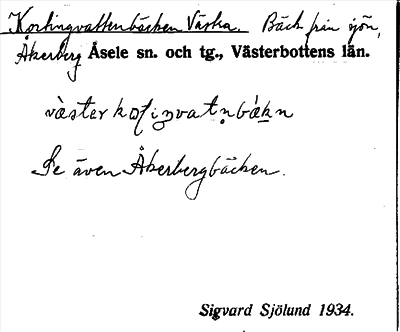 Korlingvattenbäcken Västra. Bäck från sjön,
Åkerberg Åsele sn. och tg., Västerbottens län.
väster
Se även Åkerbergbäcken.
Sigvard Sjölund 1934.